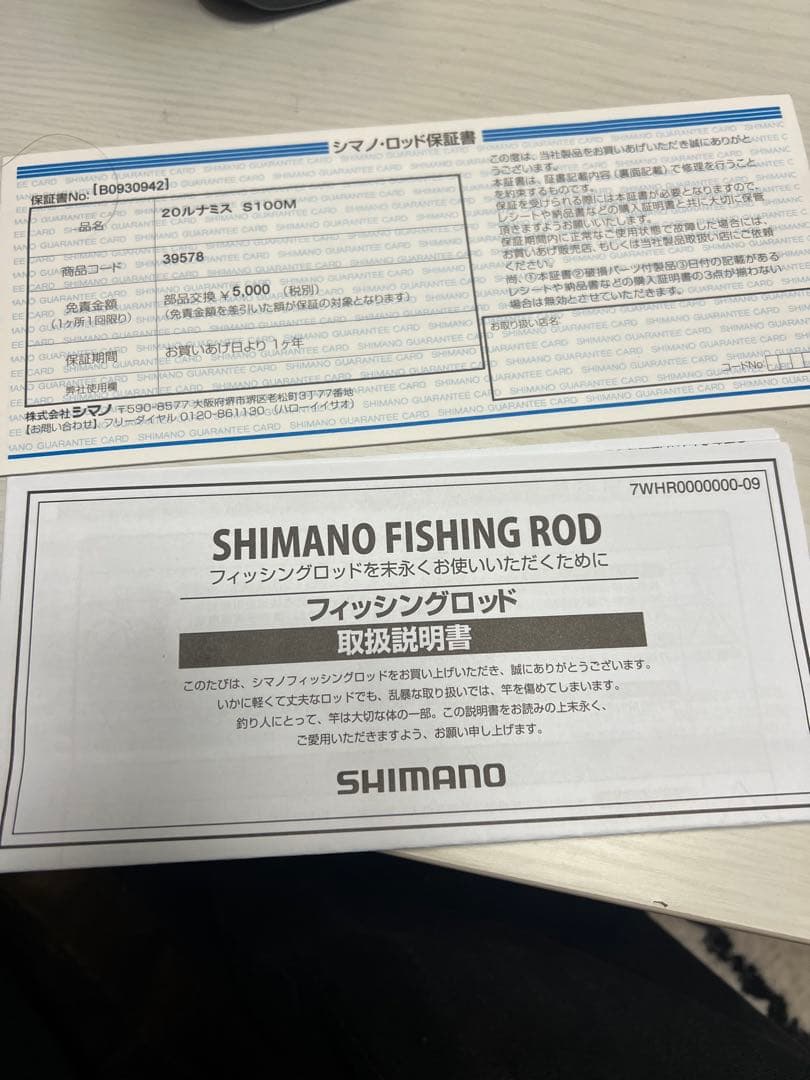 シマノ・ロッド保証書
保証書No.【B0930942】
品名 20ルナミス S100M
商品コード 39578
免責金額 (1ヶ所1回限り) 部品交換 ¥5,000 (税別)
(免責金額を差引いた額が保証の対象となります)
保証期間 お買いあげ日より 1ヶ年
弊社使用欄
株式会社シマノ 〒590-8577 大阪府堺市堺区老松町3丁77番地
【お問い合わせ】フリーダイヤル 0120-861130 (ハローイイサオ)
この度は、当社製品をお買いあげいただき誠にありがと
うございます。
本証書は、証書記載内容(裏面記載)で修理を行うこと
を約束するものです。
保証を受けられる際には本証書が必要となりますので、
レシートや納品書などの購入証明書と共に大切に保管
頂きますようお願いいたします。
保証期間内に正常なご使用状態で故障した場合には、
お買いあげ販売店、もしくは当社製品取扱い店にご依頼
ください。
尚、①本証書②破損パーツ付製品③日付の記載がある
レシートや納品書などの購入証明書の3点が揃わない
場合は無効とさせていただきます。
お取り扱い店名
コードNo
SHIMANO GUARANTEE CARD
7WHR0000000-09
SHIMANO FISHING ROD
フィッシングロッドを末永くお使いいただくために
フィッシングロッド
取扱説明書
このたびは、シマノフィッシングロッドをお買い上げいただき、誠にありがとうございます。
いかに軽くて丈夫なロッドでも、乱暴な取り扱いでは、竿を傷めてしまいます。
釣り人にとって、竿は大切な体の一部。この説明書をお読みの上末永く、
ご愛用いただきますよう、お願い申し上げます。
SHIMANO